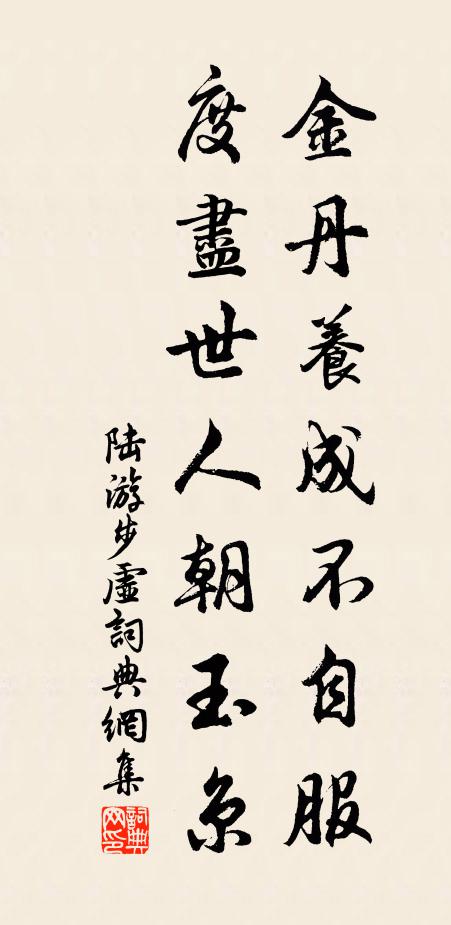 金丹養成不自服
度盡世人朝玉京
陆游步虛詞典網集
詞典网印